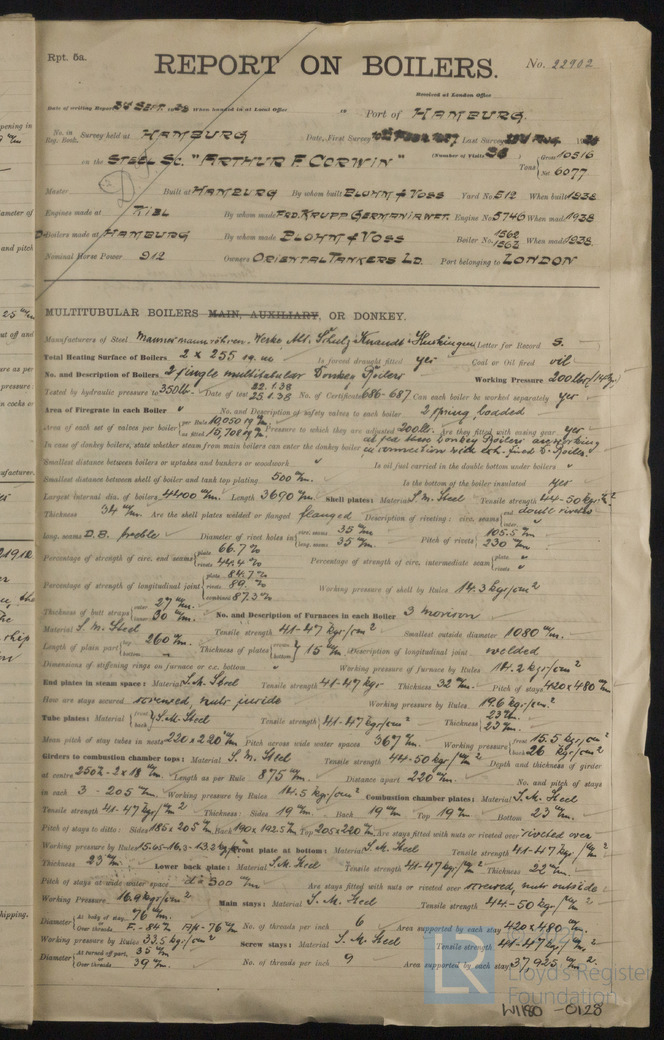 Rpt. 5a.
REPORT ON BOILERS.
No. 22902
Received at London Office
Date of writing Report 24 Sept. 1938 When handed in at Local Office " Port of HAMBURG.
No. in Reg. Book. Survey held at HAMBURG Date, First Survey Last Survey
on the STEEL SC. "ARTHUR F. CORWIN" (Number of Visits 36) Tons Gross 10516 Net 6077
Master Built at HAMBURG By whom built BLOHM & VOSS Yard No. 512 When built 1938
Engines made at KIEL By whom made FRD. KRUPP GERMANIAWFT. Engine No. 5746 When made 1938
Boilers made at HAMBURG By whom made BLOHM & VOSS Boiler No. 1562 1563 When made 1938.
Nominal Horse Power 912 Owners ORIENTAL TANKERS LD. Port belonging to LONDON
MULTITUBULAR BOILERS MAIN, AUXILIARY, OR DONKEY.
Manufacturers of Steel Mannesmannröhren-Werke Abt. Schulz Knaudt Huckingen Letter for Record S.
Total Heating Surface of Boilers 2 x 255 sq. m Is forced draught fitted yes Coal or Oil fired oil
No. and Description of Boilers 2 single multitubular Donkey Boilers Working Pressure 200 lbs
Tested by hydraulic pressure to 350 lb. Date of test 22.1.38 25.1.38 No. of Certificate 686-687 Can each boiler be worked separately yes
Area of Firegrate in each Boiler " No. and Description of safety valves to each boiler 2 spring loaded
Area of each set of valves per boiler per Rule 10,050 as fitted 15,708 Pressure to which they are adjusted 200 lb. Are they fitted with easing gear yes
In case of donkey boilers, state whether steam from main boilers can enter the donkey boiler
Smallest distance between boilers or uptakes and bunkers or woodwork " Is oil fuel carried in the double bottom under boilers "
Smallest distance between shell of boiler and tank top plating 500 m/m Is the bottom of the boiler insulated yes
Largest internal dia. of boilers 4400 m/m. Length 3690 m/m. Shell plates: Material S. M. Steel Tensile strength 44-50 kgr/m²
Thickness 34 m/m. Are the shell plates welded or flanged flanged Description of riveting: circ. seams end double riveted inter. "
long. seams D.B. treble Diameter of rivet holes in circ. seams 35 m/m long. seams 35 m/m. Pitch of rivets 105.5 m/m 230 m/m
Percentage of strength of circ. end seams plate 66.7 % rivets 44.4 % Percentage of strength of circ. intermediate seam plate rivets "
Percentage of strength of longitudinal joint plate 84.7 % rivets 89. % combined 87.3 % Working pressure of shell by Rules 14.3 kgr/cm²
Thickness of butt straps outer 27 m/m. inner 30 m/m. No. and Description of Furnaces in each Boiler 3 morison
Material S. M. Steel Tensile strength 41-47 kgr/cm² Smallest outside diameter 1080 m/m.
Length of plain part top 260 m/m. bottom " Thickness of plates crown bottom 15 m/m. Description of longitudinal joint welded
Dimensions of stiffening rings on furnace or c.c. bottom " Working pressure of furnace by Rules 14.2 kgr/cm²
End plates in steam space: Material S.M. Steel Tensile strength 41-47 kgr Thickness 32 m/m. Pitch of stays 420 x 480 m/m
How are stays secured screwed, nuts inside Working pressure by Rules 19.6 kgr/cm²
Tube plates: Material front back S.M. Steel Tensile strength 41-47 kgr/cm² Thickness 23 m/m. 23 m/m.
Mean pitch of stay tubes in nests 220 x 220 m/m Pitch across wide water spaces 367 m/m. Working pressure front 15.5 kgr/cm² back 26 kgr/cm²
Girders to combustion chamber tops: Material S. M. Steel Tensile strength 44-50 kgr/cm² Depth and thickness of girder
at centre 250 - 2 x 18 m/m. Length as per Rule 875 m/m. Distance apart 220 m/m. No. and pitch of stays
in each 3 - 205 m/m. Working pressure by Rules 14.5 kgr/cm² Combustion chamber plates: Material S. M. Steel
Tensile strength 41-47 kgr/m² Thickness: Sides 19 m/m. Back 19 m/m Top 19 m/m. Bottom 23 m/m.
Pitch of stays to ditto: Sides 185 x 205 m/m. Back 190 x 192.5 m/m Top 205 x 220 m/m. Are stays fitted with nuts or riveted over riveted over
Working pressure by Rules 15.65-16.3-13.2 kgr/cm² Front plate at bottom: Material S.M. Steel Tensile strength 41-47 kgr/m²
Thickness 23 m/m. Lower back plate: Material S.M. Steel Tensile strength 41-47 kgr/m² Thickness 22 m/m.
Pitch of stays at wide water space d = 300 m/m. Are stays fitted with nuts or riveted over screwed, nuts outside
Working Pressure 16.9 kgr/cm² Main stays: Material S. M. Steel Tensile strength 44-50 kgr/m²
Diameter At body of stay, 76 m/m. Over threads F. - 84 Aft - 76 m/m No. of threads per inch 6 Area supported by each stay 420 x 480 m/m.
Working pressure by Rules 33.5 kgr/cm² Screw stays: Material S. M. Steel Tensile strength 41-47 kgr/m²
Diameter At turned off part, 35 m/m Over threads 39 m/m. No. of threads per inch 9 Area supported by each stay 37,925 m/m²
LR
Lloyd's Register
Foundation
W1180 -0128